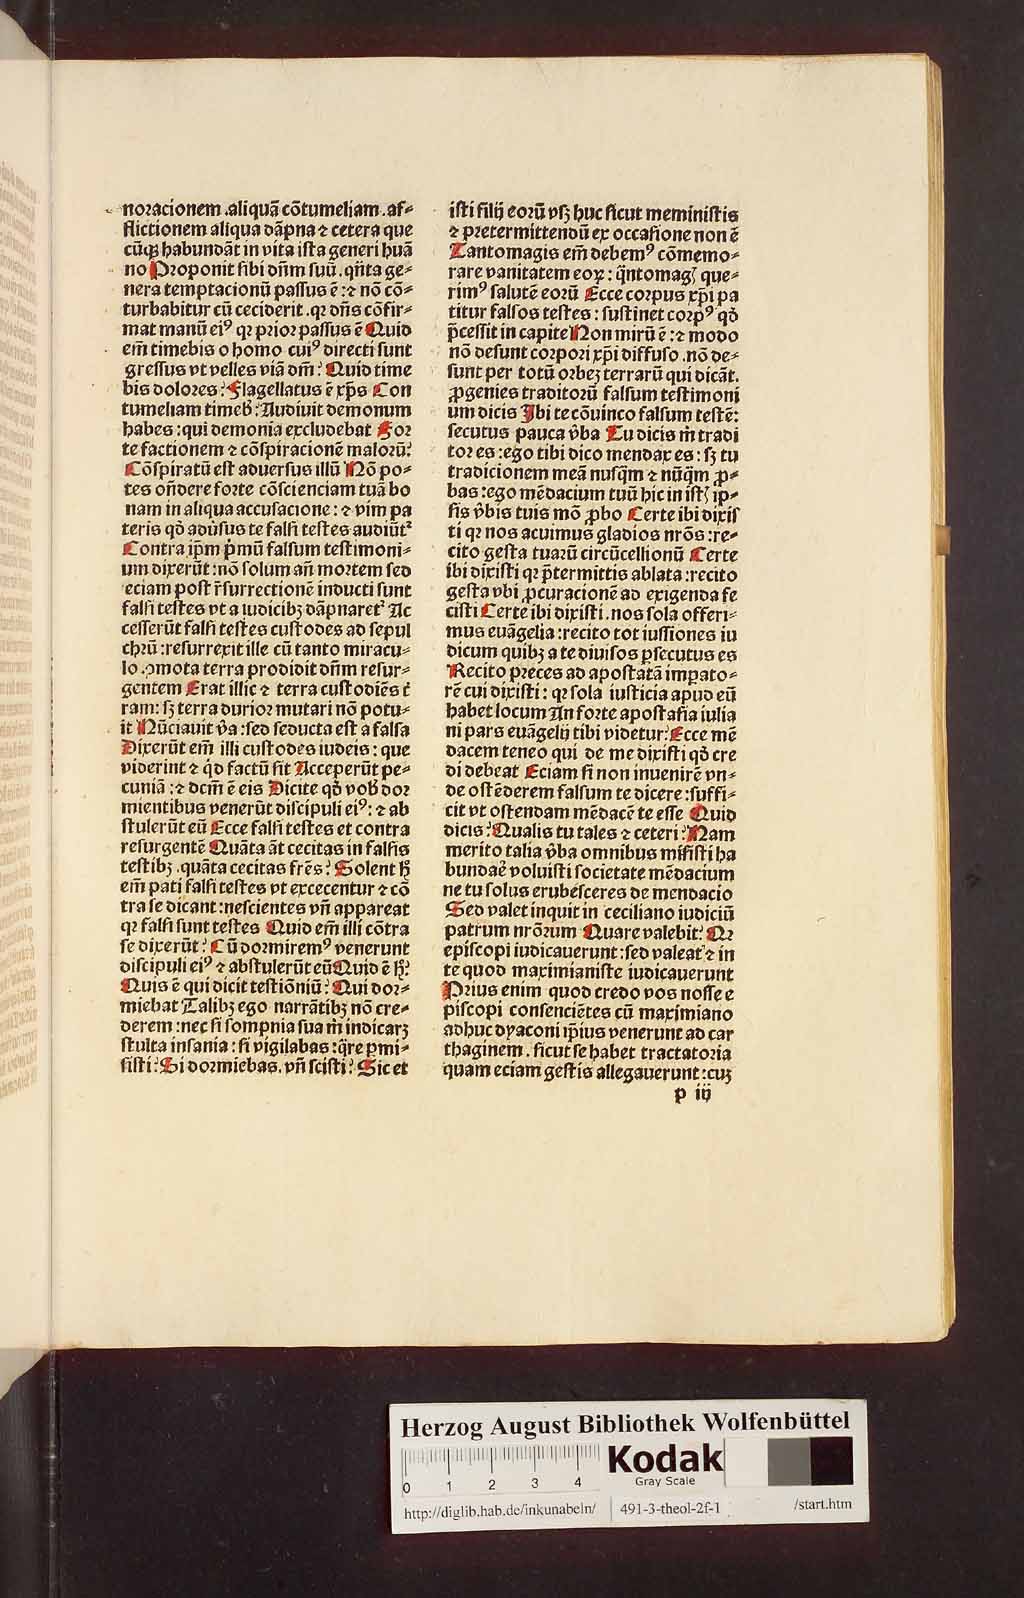 noracionem .aliquā cōtumeliam .af⸗
flictionem aliqua dāpna ⁊ cetera que
cūqꝫ habundāt in vita ista generi huā
no Proponit sibi dñm suū .qñta ge⸗
nera temptacionū passus ē :⁊ nō cō⸗
turbabitur cū ceciderit .qꝛ dñs cōfir⸗
mat manū eiꝰ qꝛ prior passus ē Quid
em̄ timebis o homo cuiꝰ directi sunt
gressus vt velles viā dm̄? Quid time
bis dolores? Flagellatus ē xp̄s Con
tumeliam timeb? Audiuit demonum
habes :qui demonia excludebat For
te factionem ⁊ cōspiracionē malorū?
Cōspiratū est aduersus illū Nō po⸗
tes oñdere forte cōscienciam tuā bo
nam in aliqua accusacione :⁊ vim pa
teris qd̄ adūsus te falsi testes audiūt᷑
Contra ip̄m p̄mū falsum testimoni⸗
um dixerūt :nō solum añ mortem sed
eciam post r̄surrectionē inducti sunt
falsi testes vt a iudicibꝫ dāpnaret᷑ Ac
cesserūt falsi testes custodes ad sepul
chrū :resurrexit ille cū tanto miracu⸗
lo .ꝯmota terra prodidit dñm resur⸗
gentem Erat illic ⁊ terra custodiēs t̄
ram: sꝫ terra durior mutari nō potu⸗
it Nūciauit v̄a :sed seducta est a falsa
Dixerūt em̄ illi custodes iudeis : que
viderint ⁊ qd̄ factū sit Acceperūt pe⸗
cuniā :⁊ dcm̄ ē eis Dicite qd̄ vob dor
mientibus venerūt discipuli eiꝰ: ⁊ ab
stulerūt eū Ecce falsi testes et contra
resurgentē Quāta āt cecitas in falsis
testibꝫ .quāta cecitas fr̄es? Solent h̄
em̄ pati falsi testes vt excecentur ⁊ cō
tra se dicant :nescientes vñ appareat
qꝛ falsi sunt testes Quid em̄ illi cōtra
se dixerūt? Cū dormiremꝰ venerunt
discipuli eiꝰ ⁊ abstulerūt eū Quid ē h̄?
Quis ē qui dicit testiōniū? Qui dor⸗
miebat Talibꝫ ego narrātibꝫ nō cre⸗
derem :nec si sompnia sua m̄ indicarꝫ
stulta insania : si vigilabas :q̄re ꝑmi⸗
sisti? Si dormiebas. vñ scisti? Sic et
isti filij eorū vsꝫ huc sicut meministis
⁊ pretermittendū ex occasione non ē
Tantomagis em̄ debemꝰ cōmemo⸗
rare vanitatem eoꝝ : q̄ntomag{ que⸗
rimꝰ salutē eorū Ecce corpus xp̄i pa
titur falsos testes : sustinet corpꝰ qd̄
p̄cessit in capite Non mirū ē :⁊ modo
nō desunt corpori xp̄i diffuso .nō de⸗
sunt per totū orbeꝫ terrarū qui dicāt.
ꝓgenies traditorū falsum testimoni
um dicis Ibi te cōuinco falsum testē:
secutus pauca v̄ba Tu dicis m̄ tradi
tor es :ego tibi dico mendax es : sꝫ tu
tradicionem meā nusq̄m ⁊ nūq̄m ꝓ⸗
bas :ego mēdacium tuū hic in ist{ ip⸗
sis v̄bis tuis mō ꝓbo Certe ibi dixis
ti qꝛ nos acuimus gladios nrōs :re⸗
cito gesta tuarū circūcellionū Certe
ibi dixisti qꝛ p̄termittis ablata :recito
gesta vbi ꝓcuracionē ad exigenda fe
cisti Certe ibi dixisti . nos sola offeri⸗
mus euāgelia :recito tot iussiones iu
dicum quibꝫ a te diuisos ꝑsecutus es
Recito preces ad apostatā imꝑato⸗
rē cui dixisti : qꝛ sola iusticia apud eū
habet locum An forte apostasia iulia
ni pars euāgelij tibi videtur? Ecce mē
dacem teneo qui de me dixisti qd̄ cre
di debeat Eciam si non inuenirē vn⸗
de ostēderem falsum te dicere :suffi⸗
cit vt ostendam mēdacē te esse Quid
dicis? Qualis tu tales ⁊ ceteri? Nam
merito talia v̄ba omnibus misisti ha
bundaē voluisti societate mēdacium
ne tu solus erubesceres de mendacio
Sed valet inquit in ceciliano iudiciū
patrum nrōrum Quare valebit? Qꝛ
episcopi iudicauerunt :sed valeat᷑ ⁊ in
te quod maximianiste iudicauerunt
Prius enim quod credo vos nosse e
piscopi consencietes cū maximiano
adhuc dyaconi ip̄ius venerunt ad car
thaginem . sicut se habet tractatoria
quam eciam gestis allegauerunt :cuꝫ
p iij
Herzog August Bibliothek Wolfenbüttel
0 1 2 3 4
Kodak
Gray Scale
http://diglib.hab.de/inkunabeln/ 491-3-theol-2f-1 /start.htm